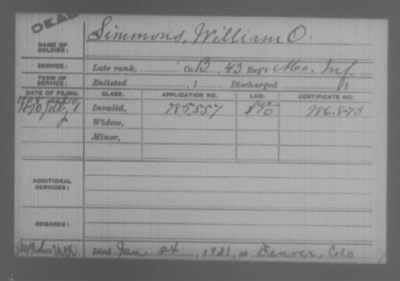 DEAD
NAME OF SOLDIER: Simmons, William O.
SERVICE: Late rank, Co. B, 43 Reg't Mo. Inf.
TERM OF SERVICE: Enlisted , 1 Discharged , 1
DATE OF FILING. CLASS. APPLICATION NO. LAW. CERTIFICATE NO.
Invalid, 785,557
Widow,
Minor,
ADDITIONAL SERVICES:
REMARKS:
Died Jan 24, 1921, at Denver, Colo